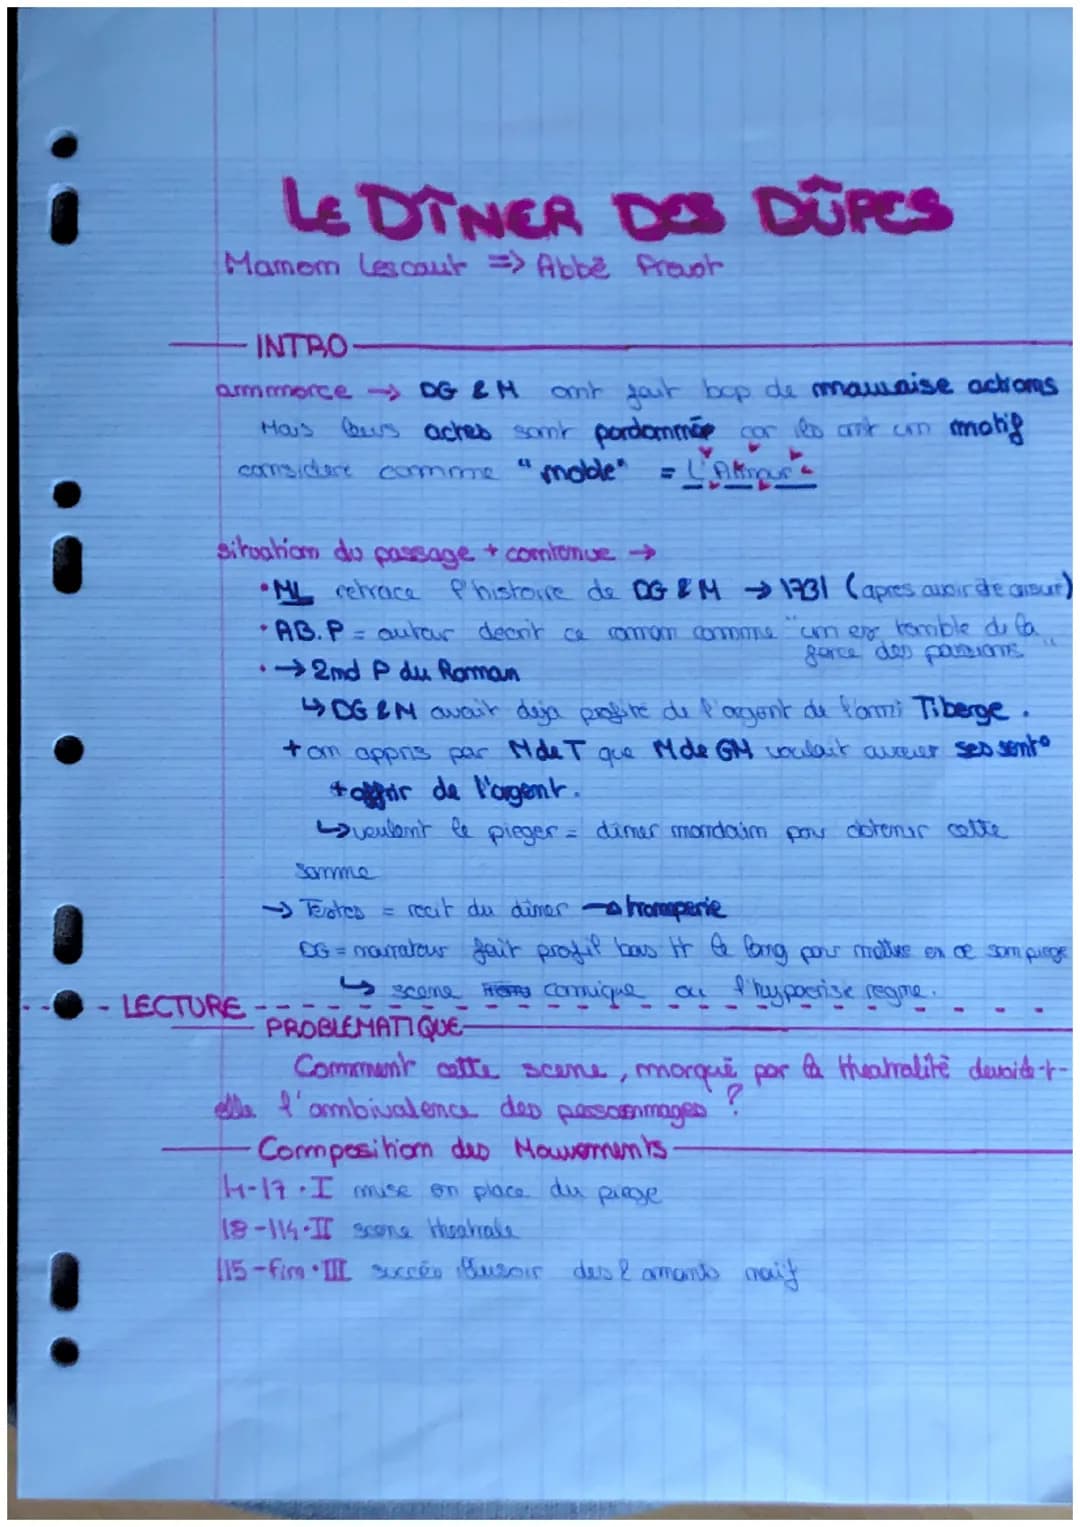 LE DÎNER DES DÛPES
Manon Lescaut => Abbé Prevot
INTRO
ammorce → DG & M ont fait bcp de mauvaise actions
Mais leurs actes sont pardonnée car ils ont un motif
considéré comme "noble" = L'Amour
situation du passage + contenue →
• ML retrace l'histoire de DG & M → 1731 (apres avoir été
• AB.P = auteur decrit ce roman comme "un ex terrible de la
force des passions"
• → 2nd P du Roman
↳ DG & M avait deja profité de l'argent de l'ami Tiberge.
+ on appris par M de T que M de GM voulait avouer ses sent°
+ offrir de l'argent.
↳ voulant le pieger = diner mondain pour obtenir cette
somme
→ Textes = recit du diner → tromperie
DG = narrateur fait profil bas tt le long pour mettre en œ son piege
↳ scene comique ou l'hypocrisie regne.
LECTURE
PROBLÉMATIQUE
Comment cette scene, marqué par la théatralité devoile-t-
elle l'ambivalence des personnages ?
Composition des Mouvements
l1-l7 • I mise en place du piege
l8-l14 • II scene theatrale
l15-fin • III succés illusoir des 2 amants naïf